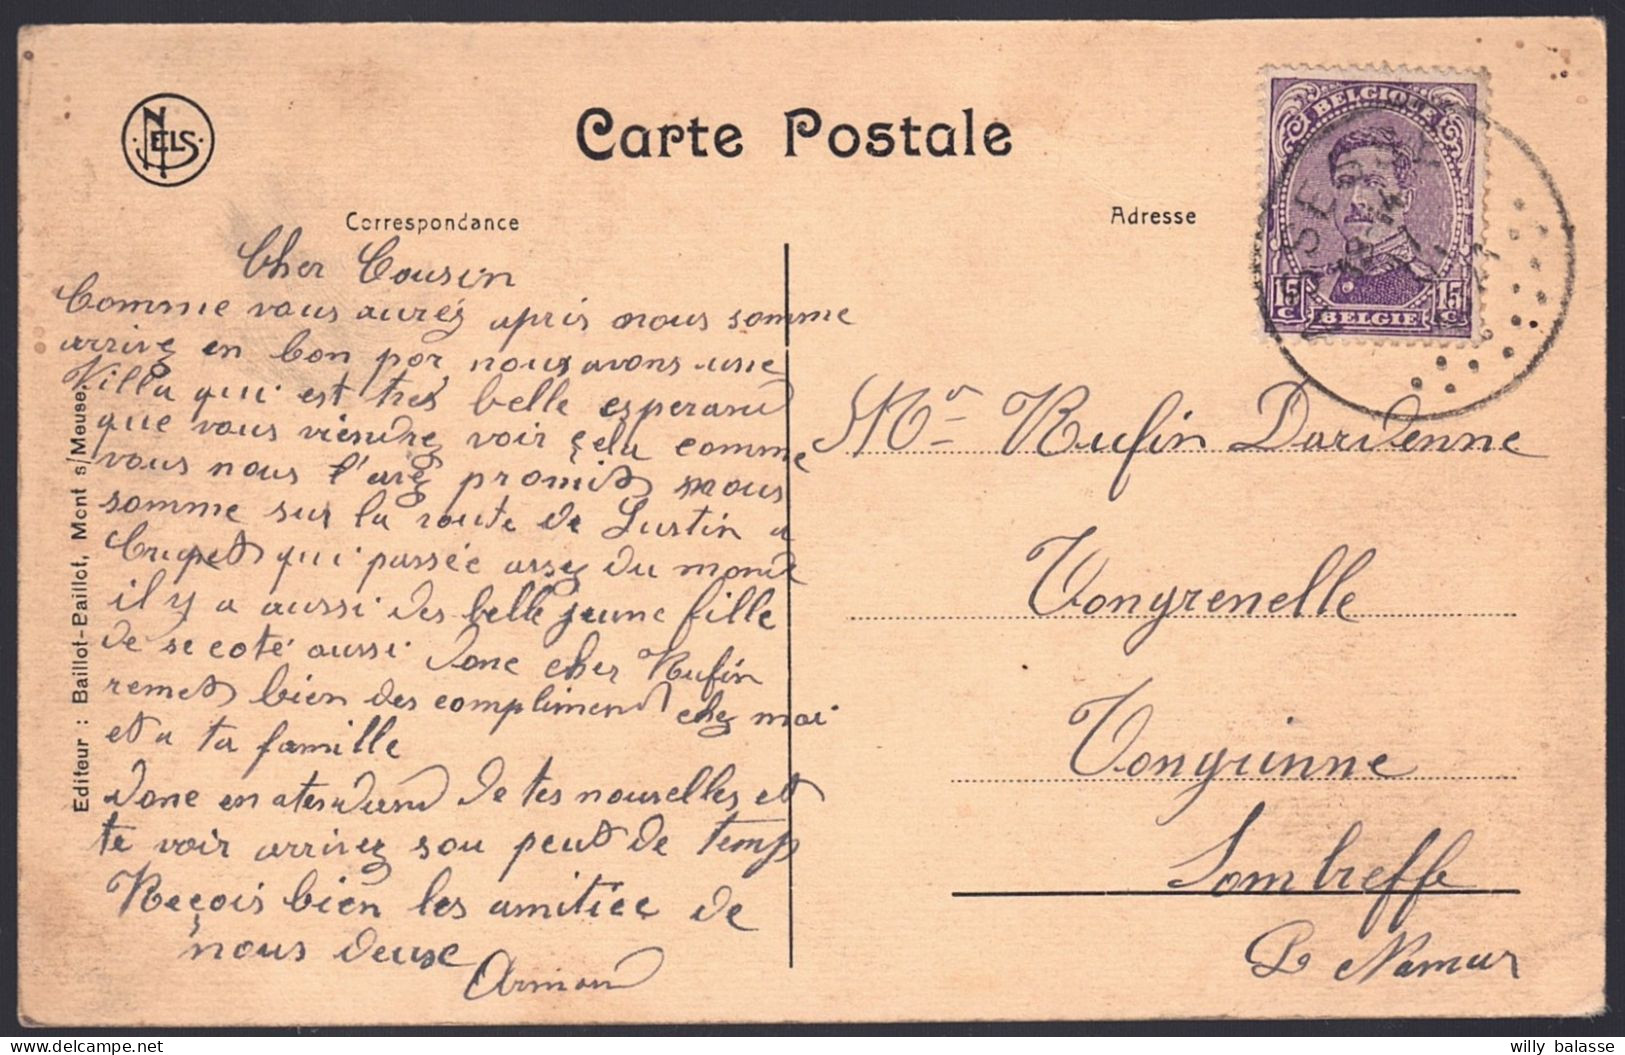 NELS
Carte Postale
Correspondance
Adresse
BELGIQUE
15c 15c
BELGIE
Cher Cousin
Comme vous aurez apris nous somme
arrivez en bon por nous avons une
Villa qui est tres belle esperand
que vous viendrez voir çela comme
vous nous l'avez promit nous
somme sur la route de Lustin a
Crupet qui passée assez du monde
il y a aussi des belle jeune fille
de se coté aussi donc cher Rufin
remet bien des compliment chez moi
et a ta famille
donc en atendand de tes nouvelles et
te voir arrivez sou peut de temps
Reçois bien les amitiee de
nous deuse
Armand
Editeur : Baillot-Paillot, Mont s/Meuse.
Mr Rufin Dardenne
Tongrenelle
Tongrinne
Sombreffe
P. Namur
willy balasse